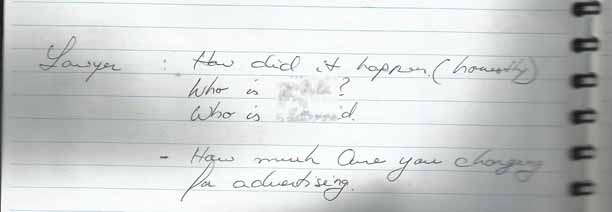 Lawyer : How did it happen. (honestly)
Who is ?
Who is d.
- How much are you charging
for advertising.